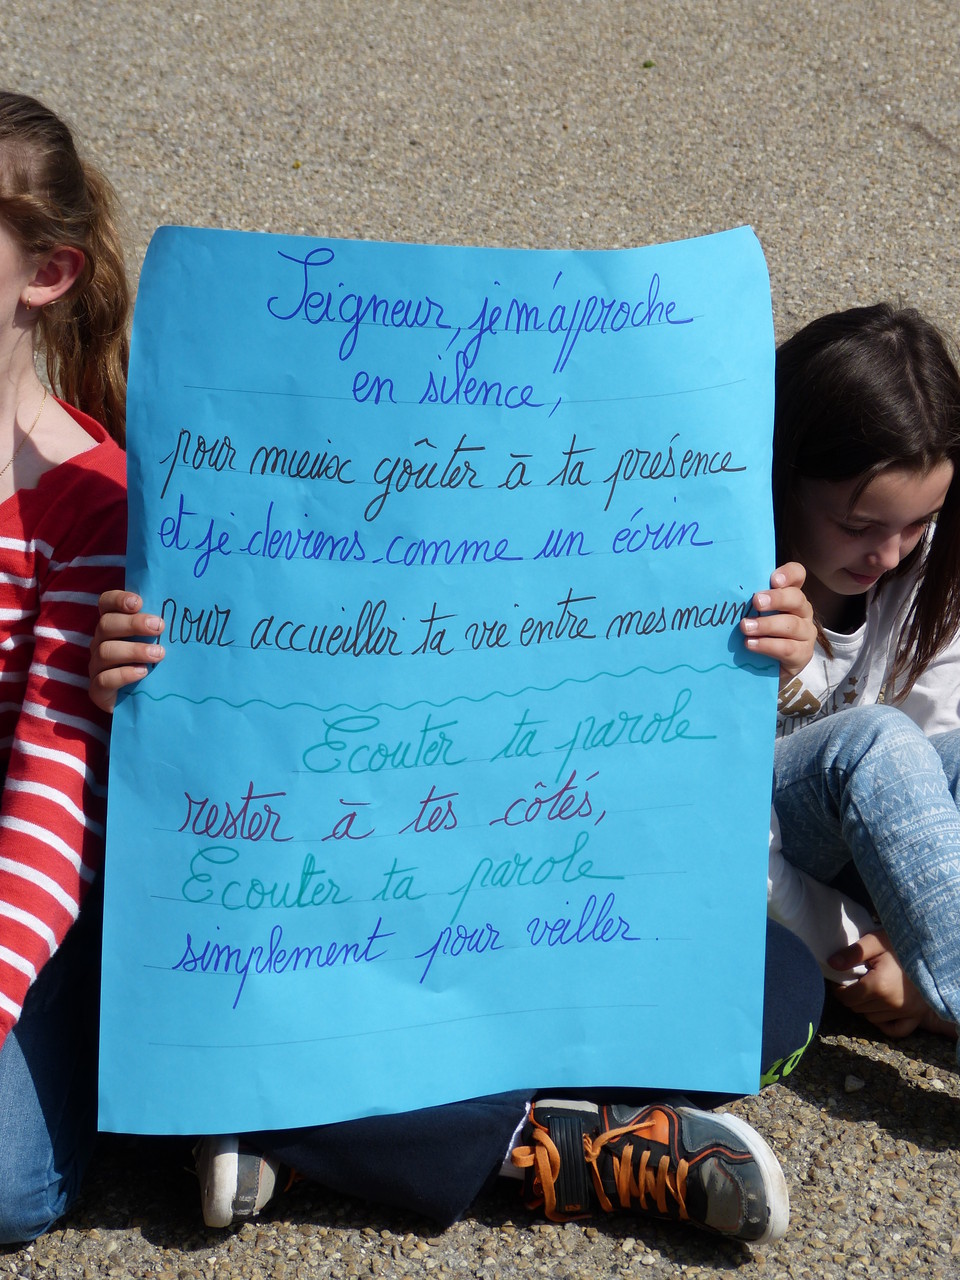 Seigneur, je m'approche
en silence,
pour mieux goûter à ta présence
et je deviens comme un écrin
pour accueillir ta vie entre mes mains
Ecouter ta parole
rester à tes côtés,
Ecouter ta parole
simplement pour veiller.